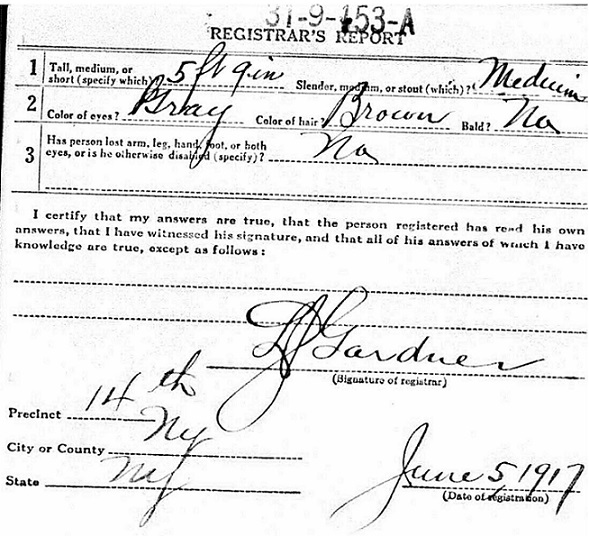 31-9-153-A
REGISTRAR'S REPORT
1 Tall, medium, or short (specify which) 5 ft 9 in Slender, medium, or stout (which)? Medium
2 Color of eyes? Gray Color of hair? Brown Bald? No
3 Has person lost arm, leg, hand, foot, or both eyes, or is he otherwise disabled (specify)? No
I certify that my answers are true, that the person registered has read his own
answers, that I have witnessed his signature, and that all of his answers of which I have
knowledge are true, except as follows:
Gardner
(Signature of registrar)
Precinct 14th
City or County NY
State NY
June 5, 1917
(Date of registration)